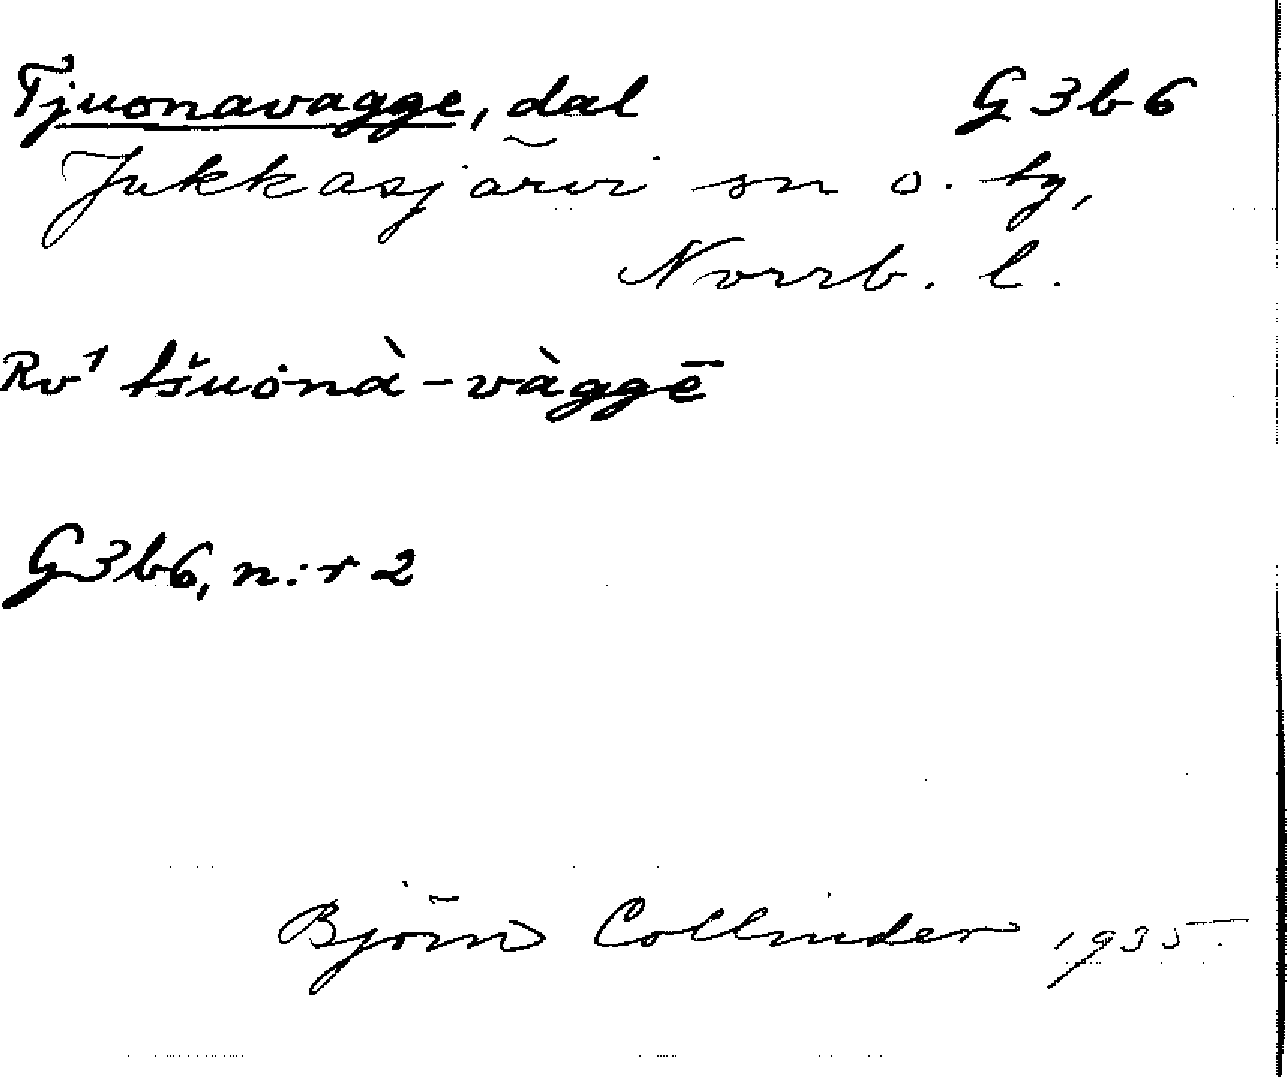 Tjuonavagge, dal G3b6
Jukkasjärvi sn o. by,
Norrb. l.
Rv1 tšuọnà-vàggē
G3b6, n:r 2
Björn Collinder 1935.